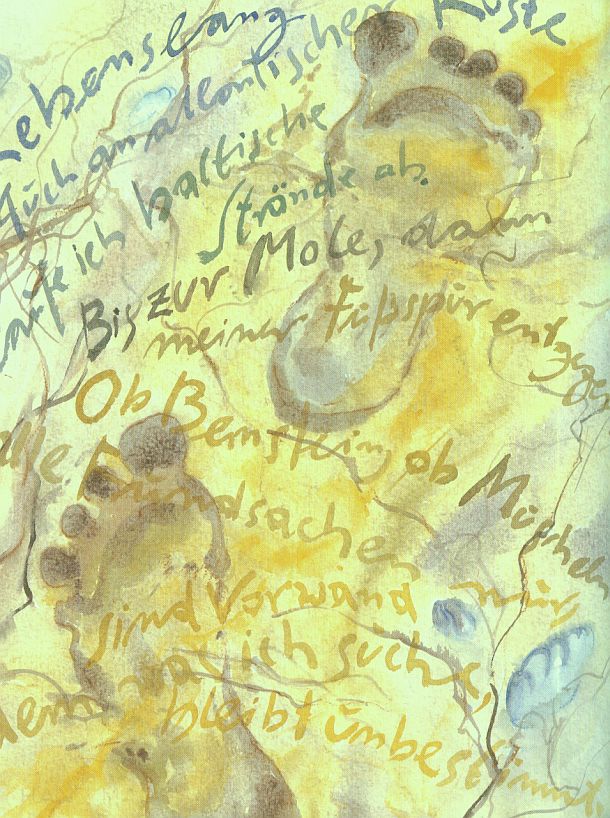 Lebenslang
Auch an atlantischer Küste
laufe ich baltische
Strände ab.
Bis zur Mole, dann
meiner Fußspur entgegen
Ob Bernstein, ob Muscheln
alle Fundsachen
sind Vorwand nur,
denn was ich suche,
bleibt unbestimmt.